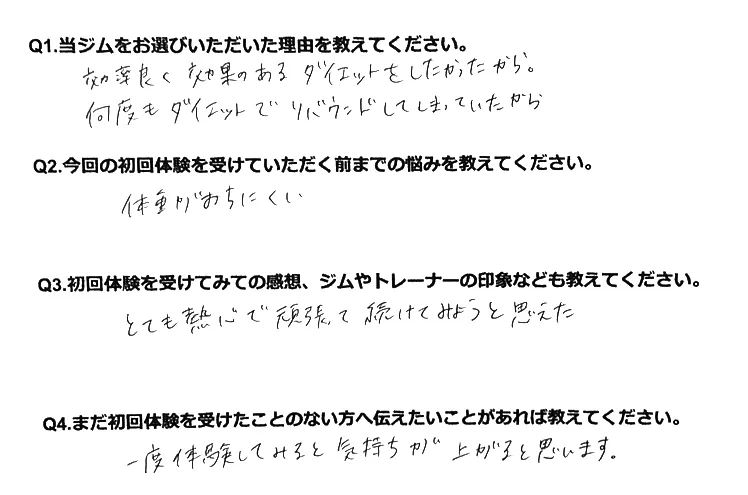 Q1.当ジムをお選びいただいた理由を教えてください。
効率良く効果のあるダイエットをしたかったから。
何度もダイエットでリバウンドしてしまっていたから
Q2.今回の初回体験を受けていただく前までの悩みを教えてください。
体重がおちにくい
Q3.初回体験を受けてみての感想、ジムやトレーナーの印象なども教えてください。
とても熱心で頑張って続けてみようと思えた
Q4.まだ初回体験を受けたことのない方へ伝えたいことがあれば教えてください。
一度体験してみると気持ちが上がると思います。